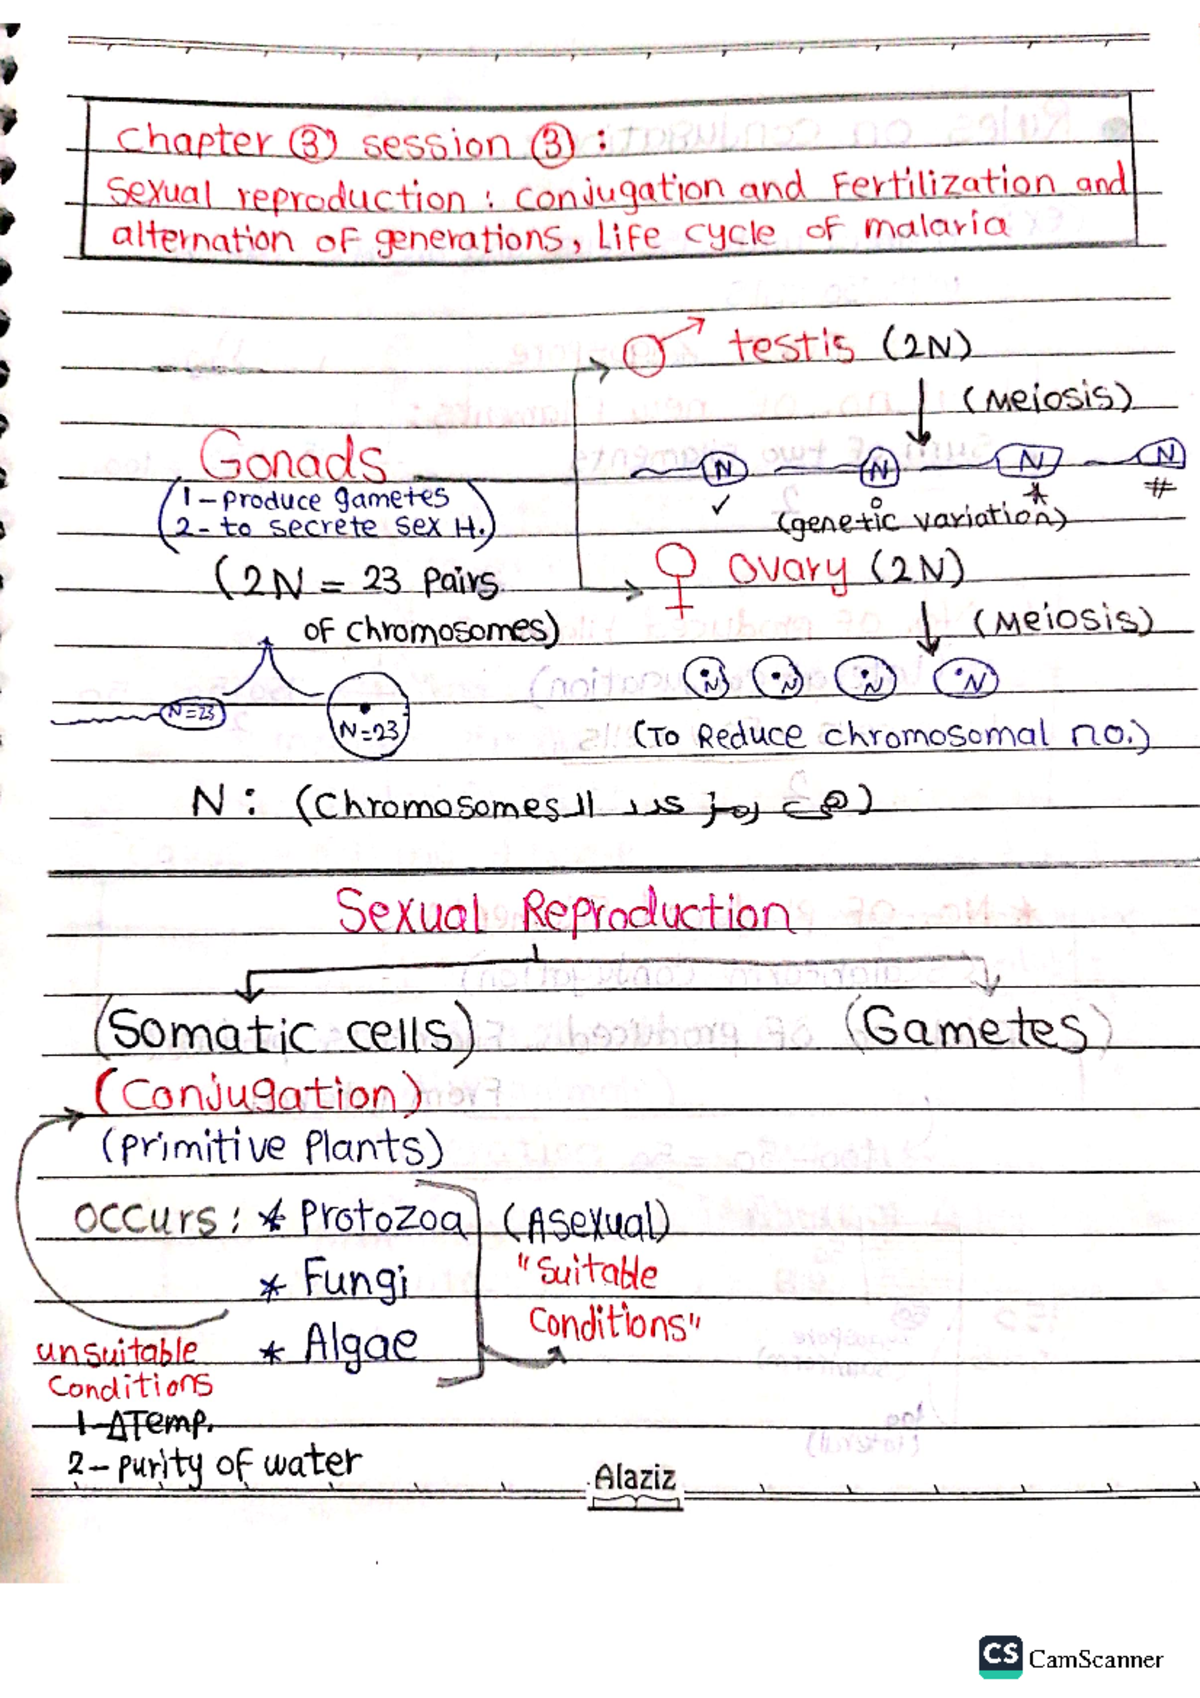 Chapter ③ session ③ :
Sexual reproduction : conjugation and Fertilization and
alternation of generations, Life cycle of malaria
testis (2N)
(Meiosis)
Gonads
N N N N
1 - produce gametes
✓ * #
2 - to secrete sex H.
(genetic variation)
(2N = 23 Pairs
of chromosomes)
ovary (2N)
(Meiosis)
N N N N
N=23 N=23
(To Reduce chromosomal no.)
N : (Chromosomes هي رمز عدد ال)
Sexual Reproduction
(Somatic cells) (Gametes)
(Conjugation)
(Primitive Plants)
occurs : * Protozoa (Asexual)
* Fungi "Suitable
Conditions"
* Algae
unsuitable
Conditions
1-ΔTemp.
2- purity of water
Alaziz
CS CamScanner